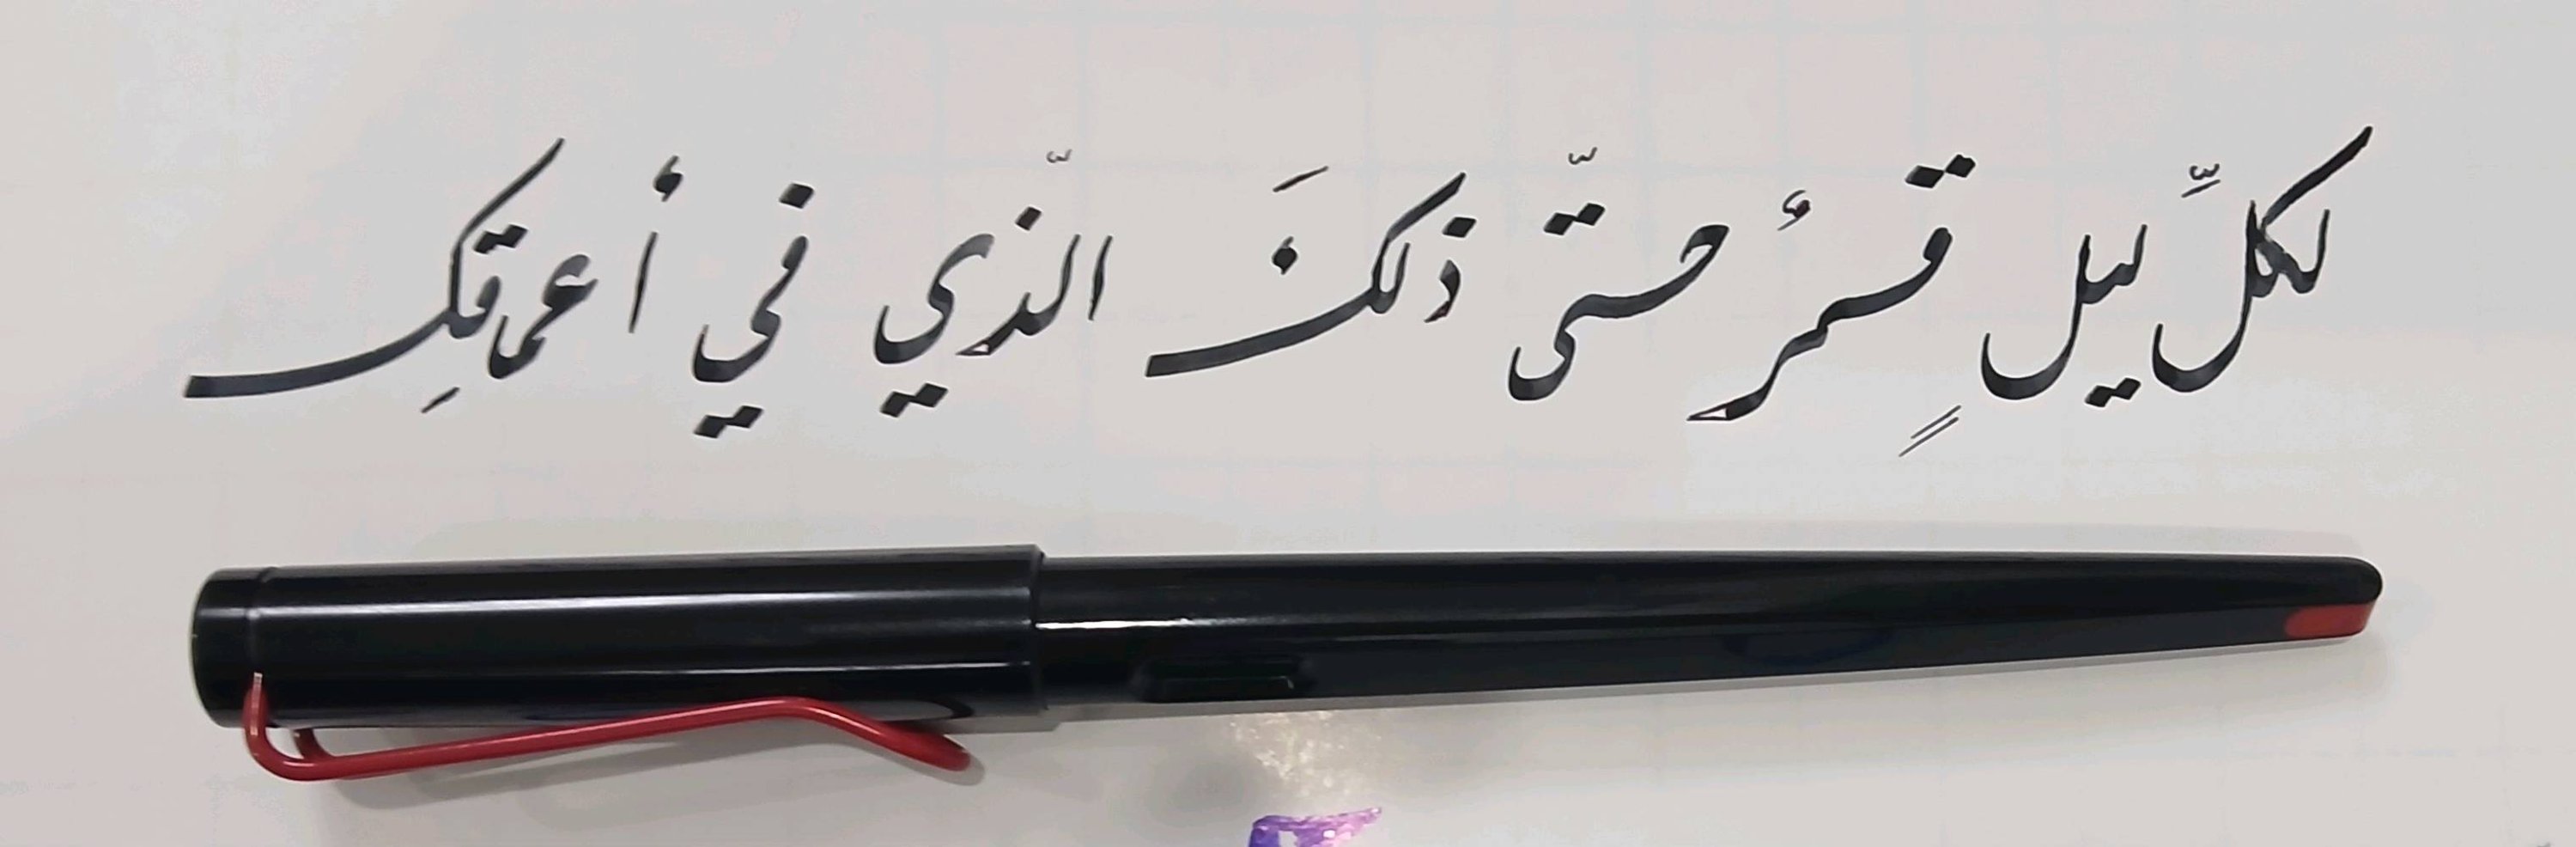 لكلِّ ليلٍ قمرٌ حتّى ذلكَ الّذي في أعماقكِ